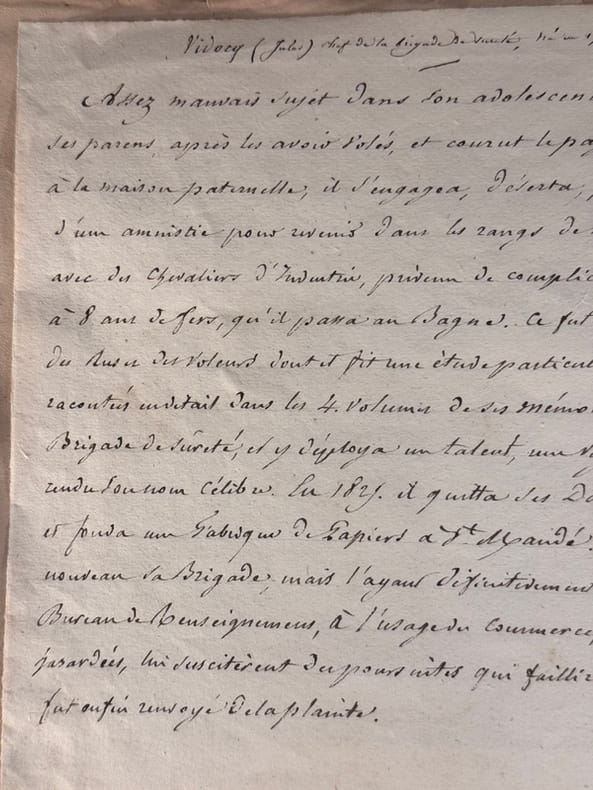 Vidocq (Jules) chef de la brigade de sureté, né en 1
Assez mauvais sujet dans son adolescen
ses parens, après les avoir volés, et courut le pa
à la maison paternelle, il s'engagea, déserta,
d'une amnistie pour revenir dans les rangs de
avec des Chevaliers d'Industrie, prévenu de complic
à 8 ans de fers, qu'il passa au Bagne. Ce fut
des Ruses des voleurs dont il fit une étude particul
racontées en détail dans les 4 volumes de ses mémo
Brigade de sûreté, et y déploya un talent, une
rendu son nom célèbre. En 182 il quitta ses
et fonda une Fabrique de Papiers à St. Mandé.
nouveau sa Brigade, mais l'ayant définitivemen
Bureau de Renseignemens, à l'usage du Commerce,
hazardées, lui suscitèrent des poursuites qui failli
fut enfin renvoyé de la plainte.